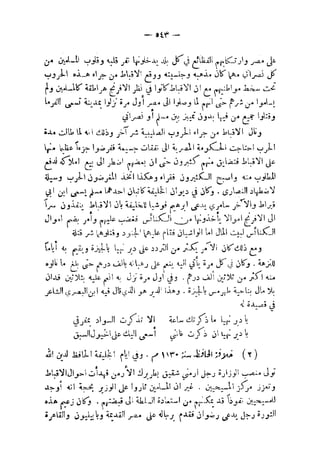 — ٥٤٣ —
على مصر وارتكابهم الفظائع في كل بلد يدخلونها نفر قلبه وقلوب المسلمين من
كل نصراني مهما كان مذهبه وجنسيته ووقع الاقباط من جراء هذه الحروب
تحت سخط مواطنيهم مع ان الاقباط كانوا في نظر الافرنج هراطقة كالمسلمين ولم
يسلموا من شرهم حتى انهم لما وصلوا الى مصر أول مرة نزلوا بمدينة تسمى الفرما
وقتلوا جميع من فيها بدون تمييز بين مسلم أو نصراني
ونال الاقباط من جراء الحروب الصليبية شر آخر وذلك انه لما طالت مدة
الحرب احتاجت الحكومة المصرية الى نفقات جسيمة ففرضوا جزءاً عظيما منها
على الاقباط فتضايق منهم كثيرون حتى ان بعضهم اضطر الى بيع املاكه لدفع
المطلوب منه واصبح الكثيرون فقراء وهكذا اتخذ المغرضون الحروب وسيلة
لاضطهاد النصارى . وكان في ديوان الخليفة كاتبان احدهما مسلم يسمى ابن ابي
قيراط والآخر سامري يدعى ابرهيم فوشيا للخليفة بان الاقباط ينفذون سراً
الى الافرنج اموالا يأخذونها من الكنائس فغضب عليهم وأمر بضم اموال
الكنائس لبيت المال اما الواشيان فقام عليهما الجنود وقتلوهما شر قتلة
ومع ذلك كان الآمر يكثر من التردد على دير نهيا بالجيزة ويقيم به أياماً
للنزهة . وكان في كل مرة يأتي اليه ينعم على رهبانه بالف درهم حتى بلغ ما نالوه
منه اكثر من ثلاثين الف درهم . وفي أول مرة نزل به انعم عليه بثلاثين فدان
بلا مال بناحية طهرمس بالجيزة . وهذا الدير هو الذي قال فيه ابن البصري الشاعر
في قصيدة له
يا دير نهيا ما ذكرتك ساعة الا تذكرت السواد بمفرقي
يا دير نهيا ان ذكرت فانني أسعى اليك على الخيول السبق
( ٢ ) خلافة الحافظ سنة ١١٣٠ م . وفي ايام الخليفة الحافظ لدين الله
تولى منصب الوزارة رجل ارمني شقيق بطريرك الارمن فهدأت احوال الاقباط
وتعزز مركز المسيحيين . غير ان المسلمين ثاروا على الوزير بحجة انه أوجد
للمسيحيين نفوذاً قد يمكنهم من استعادة السلطة الى قبضتهم . وكان زعيم هذه
الثورة رجل يدعى رضوان فقدم برجاله على مصر القديمة وبابيليون والقاهرة